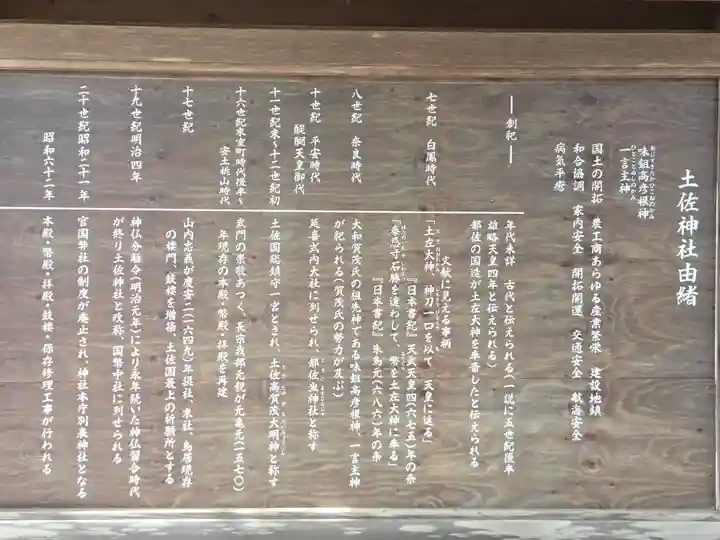 土佐神社由緒
味鉏高彦根神
一言主神
国土の開拓 農工商あらゆる産業繁栄 建設地鎮
和合協調 家内安全 開拓開運 交通安全 航海安全
病気平癒
――創祀――
年代未詳 古代と伝えられる(一説に五世紀後半
雄略天皇四年と伝えられる)
都佐の国造が土左大神を奉斎したと伝えられる
七世紀 白鳳時代
文献に見える事柄
「土左大神、神刀一口を以て、天皇に進る」
『日本書紀』天武天皇四(六七五)年の条
「秦忌寸石勝を遣わして、幣を土左大神に奉る」
『日本書紀』朱鳥元(六八六)年の条
八世紀 奈良時代
大和賀茂氏の祖先神である味鉏高彦根神、一言主神
が祀られる(賀茂氏の勢力が及ぶ)
十世紀 平安時代
醍醐天皇御代
延喜式内大社に列せられ、都佐坐神社と称す
十一世紀末~十二世紀初
土佐国総鎮守一宮とされ、土佐高賀茂大明神と称す
十六世紀末室町時代後半~
安土桃山時代
武門の崇敬あつく、長宗我部元親が元亀元(一五七〇)
年現存の本殿・幣殿・拝殿を再建
十七世紀
山内忠義が慶安二(一六四九)年摂社、末社、鳥居現存
の楼門、鼓楼を増築、土佐国最上の祈願所とする
十九世紀明治四年
神仏分離令(明治元年)により永年続いた神仏習合時代
が終り土佐神社と改称、国幣中社に列せられる
二十世紀昭和二十一年
官国幣社の制度が廃止され、神社本庁別表神社となる
昭和六十二年
本殿・幣殿・拝殿・鼓楼・保存修理工事が行われる